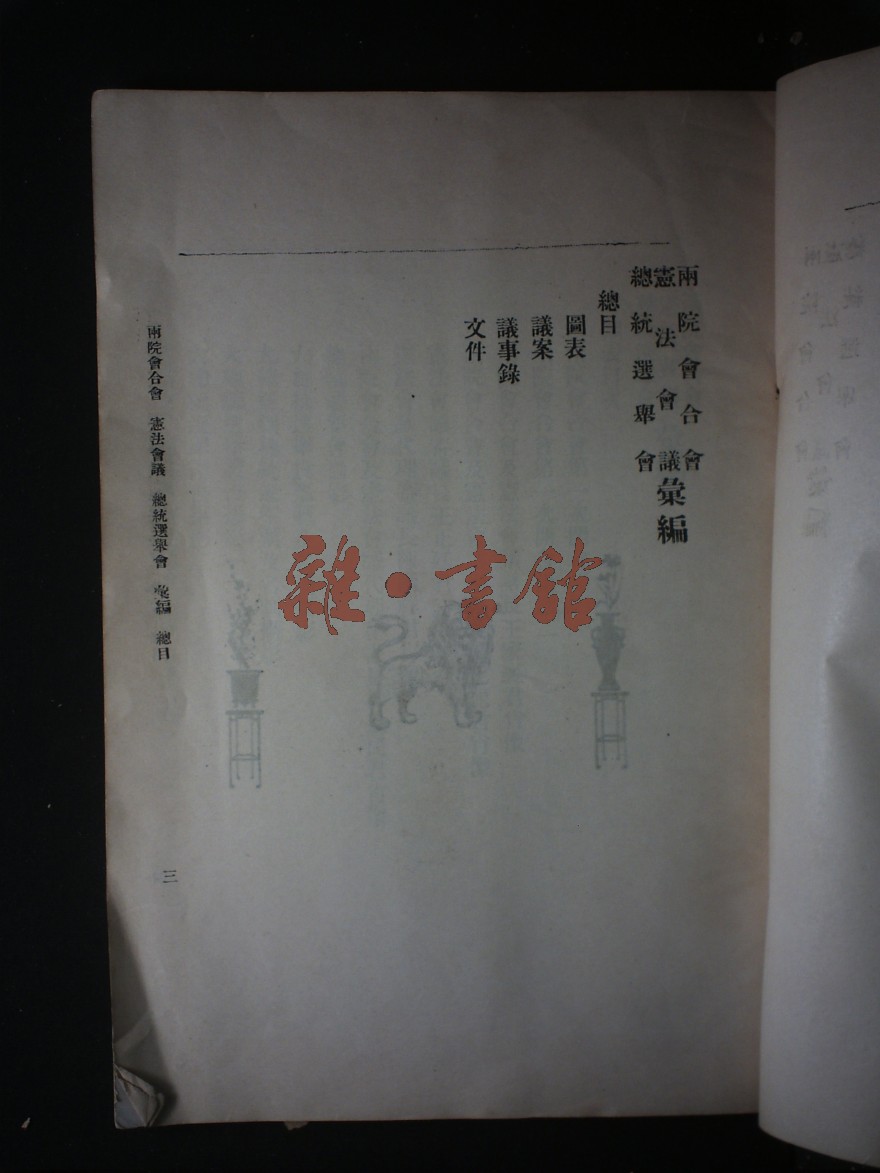 兩院會合會
憲法會議
總統選舉會
彙編
總目
圖表
議案
議事錄
文件
兩院會合會 憲法會議 總統選舉會 彙編 總目
三
雜·書館